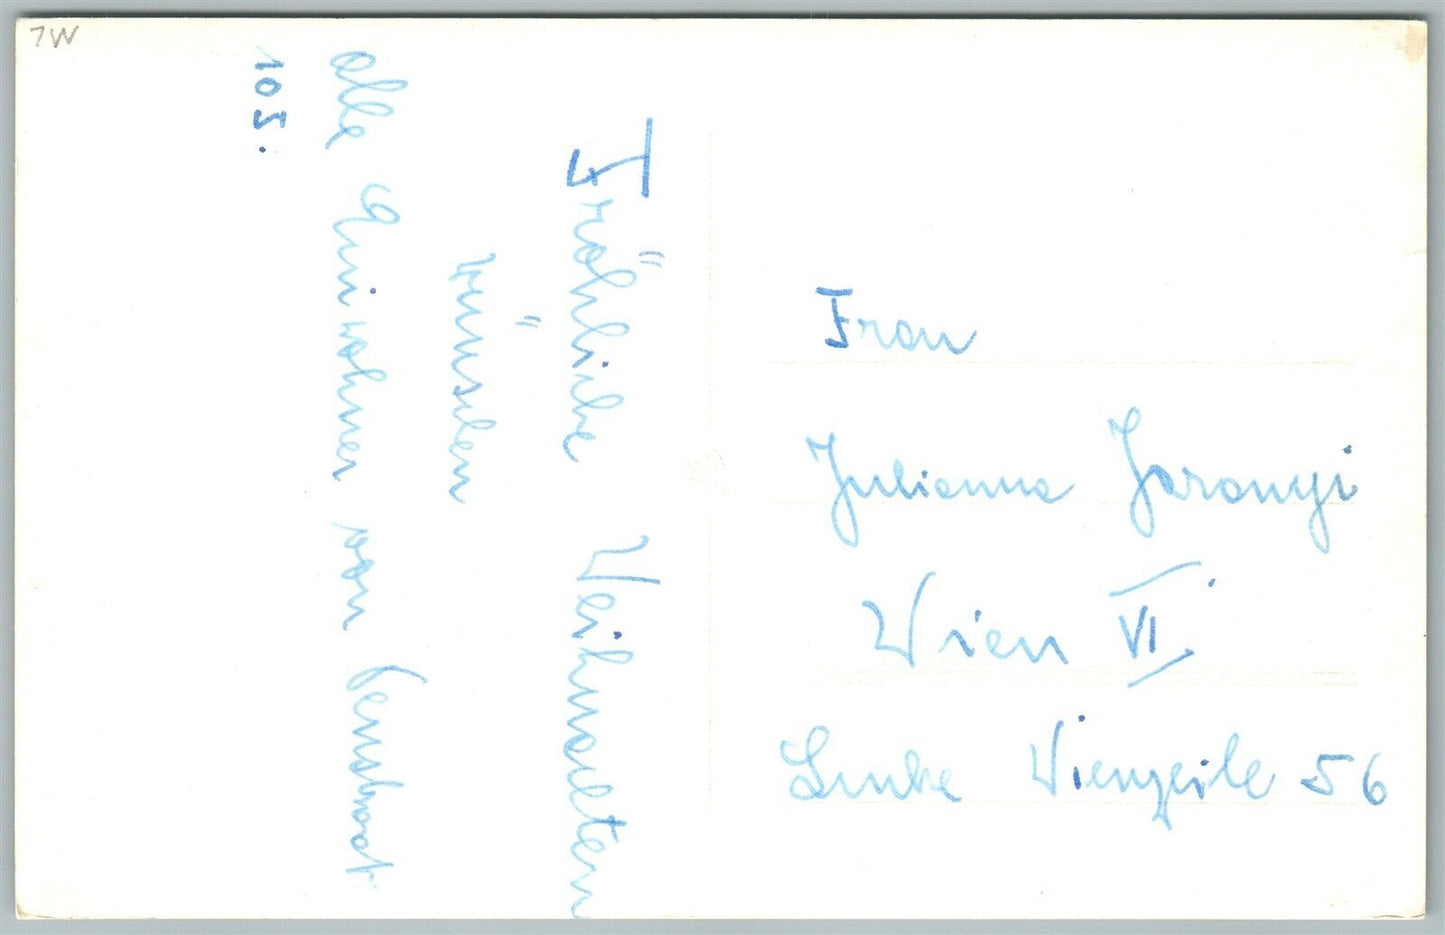 7W
Fröhliche Weihnachten
wünschen
alle Einwohner von
10S.
Frau
Julianna Jaranyi
Wien VI.
Linke Wienzeile 56